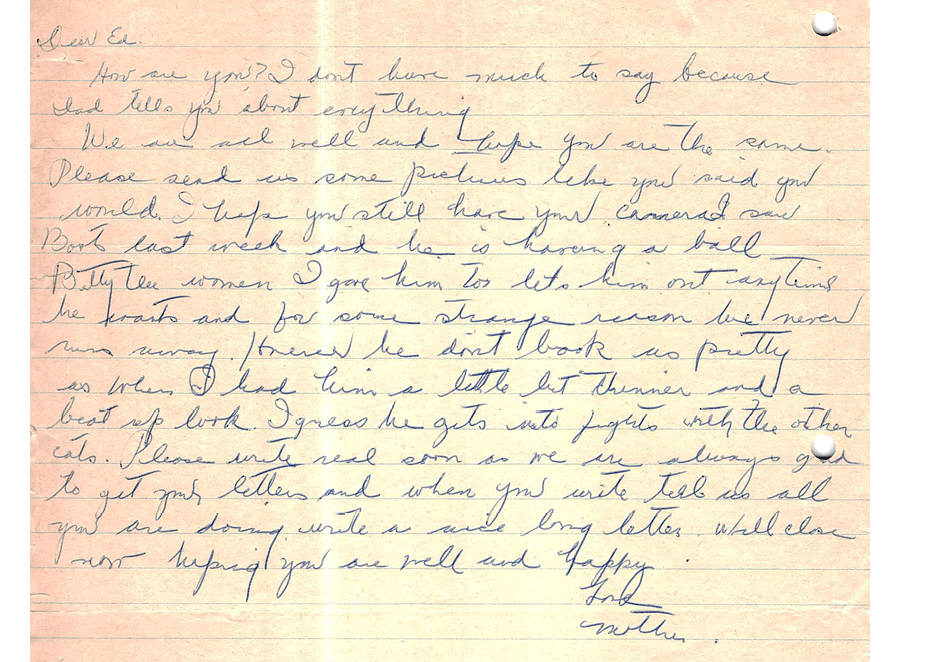 Dear Ed.
How are you? I dont have much to say because
Dad tells you about everything
We are all well and hope you are the same.
Please send us some pictures like you said you
would. I hope you still have your camera I saw
Boots last week and he is having a ball
Betty the women I gave him too lets him out anytime
he wants and for some strange reason he never
runs away. However he dont look as pretty
as when I had him a little bit thinner and a
beat up look. I guess he gets into fights with the other
cats. Please write real soon as we are always glad
to get your letters and when you write tell us all
you are doing write a nice long letter. Will close
now hoping you are well and happy.
Love
Mother.